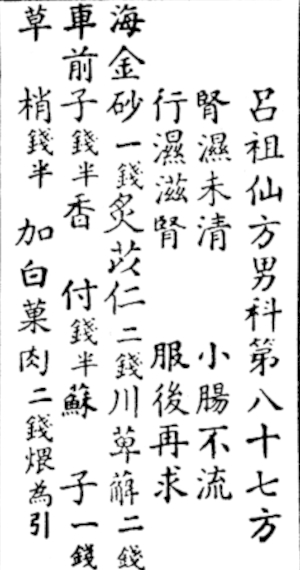 呂祖仙方男科第八十七方
腎濕未清 小腸不流
行濕滋腎 服後再求
海金砂一錢炙芪仁二錢川萆薢二錢
車前子錢半香付錢半蘇子一錢
草梢錢半 加白菓肉二錢煨為引